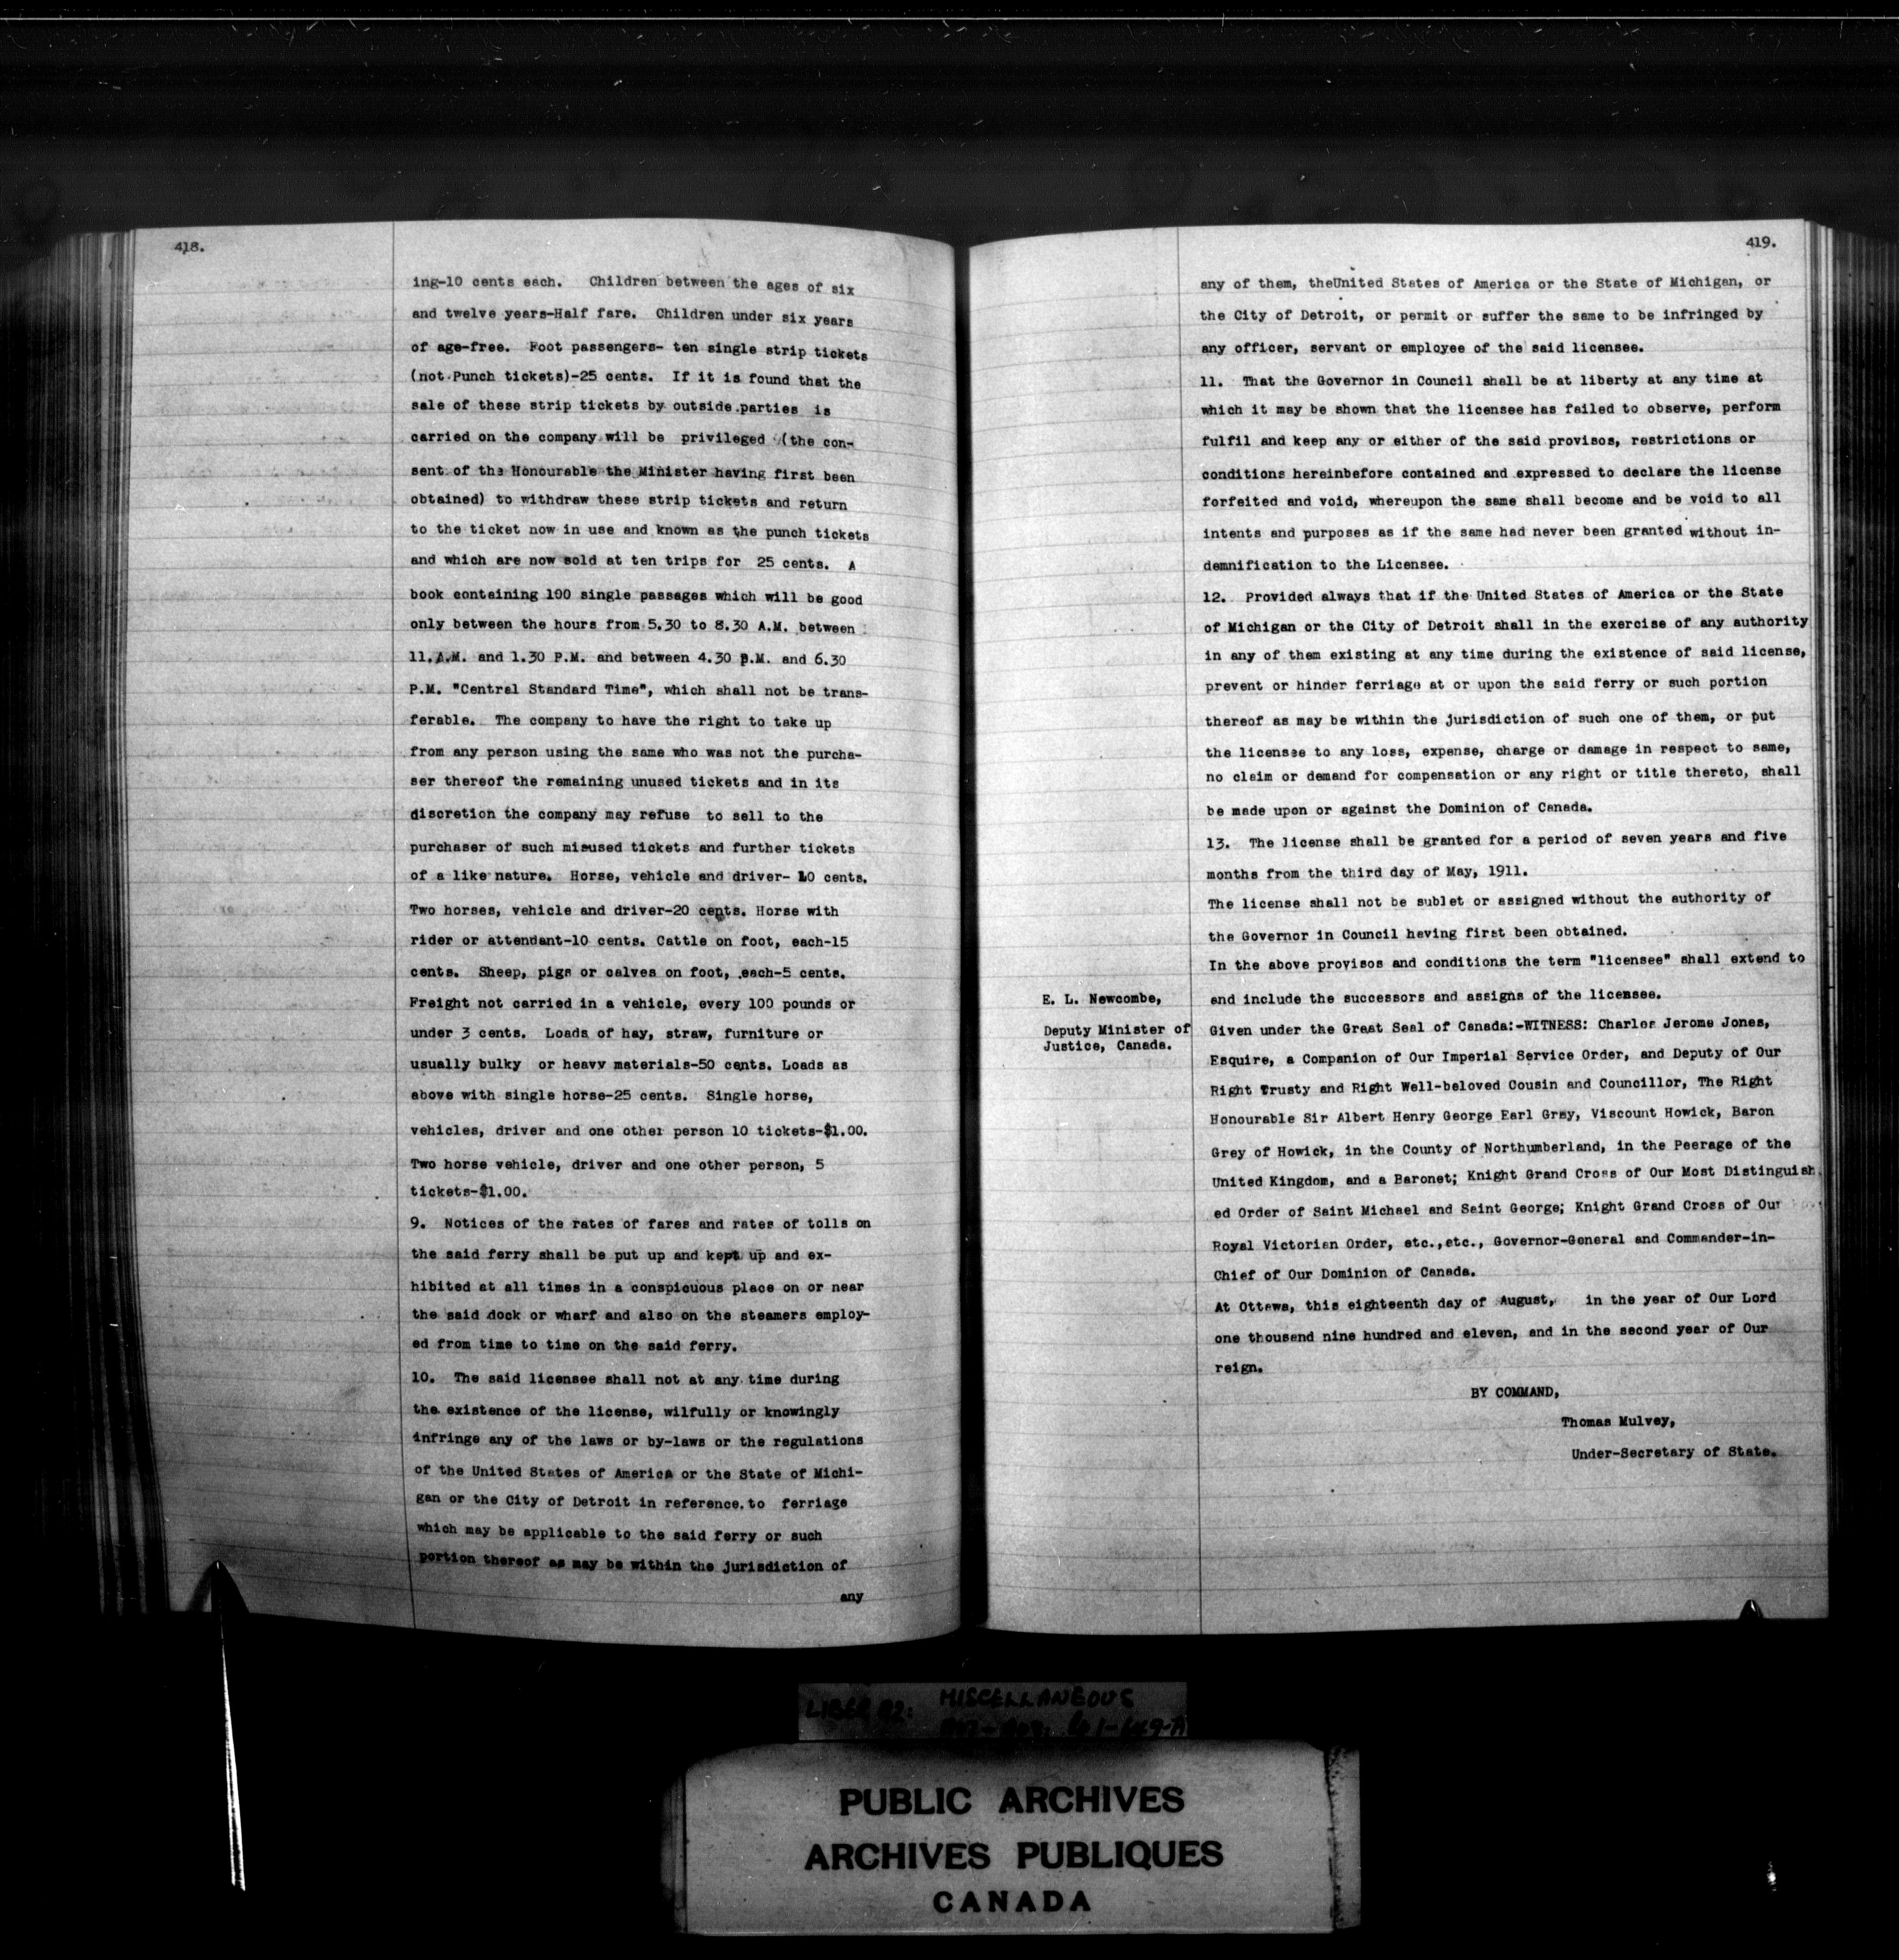 418.
ing-10 cents each. Children between the ages of six
and twelve years-Half fare. Children under six years
of age-free. Foot passengers- ten single strip tickets
(not Punch tickets)-25 cents. If it is found that the
sale of these strip tickets by outside parties is
carried on the company will be privileged (the con-
sent of the Honourable the Minister having first been
obtained) to withdraw these strip tickets and return
to the ticket now in use and known as the punch tickets
and which are now sold at ten trips for 25 cents. A
book containing 100 single passages which will be good
only between the hours from 5.30 to 8.30 A.M. between
11.A.M. and 1.30 P.M. and between 4.30 P.M. and 6.30
P.M. "Central Standard Time", which shall not be trans-
ferable. The company to have the right to take up
from any person using the same who was not the purcha-
ser thereof the remaining unused tickets and in its
discretion the company may refuse to sell to the
purchaser of such misused tickets and further tickets
of a like nature. Horse, vehicle and driver- 10 cents.
Two horses, vehicle and driver-20 cents. Horse with
rider or attendant-10 cents. Cattle on foot, each-15
cents. Sheep, pigs or calves on foot, each-5 cents.
Freight not carried in a vehicle, every 100 pounds or
under 3 cents. Loads of hay, straw, furniture or
usually bulky or heavy materials-50 cents. Loads as
above with single horse-25 cents. Single horse,
vehicles, driver and one other person 10 tickets-$1.00.
Two horse vehicle, driver and one other person, 5
tickets-$1.00.
9. Notices of the rates of fares and rates of tolls on
the said ferry shall be put up and kept up and ex-
hibited at all times in a conspicuous place on or near
the said dock or wharf and also on the steamers employ-
ed from time to time on the said ferry.
10. The said licensee shall not at any time during
the existence of the license, wilfully or knowingly
infringe any of the laws or by-laws or the regulations
of the United States of America or the State of Michi-
gan or the City of Detroit in reference to ferriage
which may be applicable to the said ferry or such
portion thereof as may be within the jurisdiction of
any
419.
any of them, theUnited States of America or the State of Michigan, or
the City of Detroit, or permit or suffer the same to be infringed by
any officer, servant or employee of the said licensee.
11. That the Governor in Council shall be at liberty at any time at
which it may be shown that the licensee has failed to observe, perform
fulfil and keep any or either of the said provisos, restrictions or
conditions hereinbefore contained and expressed to declare the license
forfeited and void, whereupon the same shall become and be void to all
intents and purposes as if the same had never been granted without in-
demnification to the Licensee.
12. Provided always that if the United States of America or the State
of Michigan or the City of Detroit shall in the exercise of any authority
in any of them existing at any time during the existence of said license,
prevent or hinder ferriage at or upon the said ferry or such portion
thereof as may be within the jurisdiction of such one of them, or put
the licensee to any loss, expense, charge or damage in respect to same,
no claim or demand for compensation or any right or title thereto, shall
be made upon or against the Dominion of Canada.
13. The license shall be granted for a period of seven years and five
months from the third day of May, 1911.
The license shall not be sublet or assigned without the authority of
the Governor in Council having first been obtained.
In the above provisos and conditions the term "licensee" shall extend to
and include the successors and assigns of the licensee.
E. L. Newcombe,
Deputy Minister of
Justice, Canada.
Given under the Great Seal of Canada:-WITNESS: Charles Jerome Jones,
Esquire, a Companion of Our Imperial Service Order, and Deputy of Our
Right Trusty and Right Well-beloved Cousin and Councillor, The Right
Honourable Sir Albert Henry George Earl Grey, Viscount Howick, Baron
Grey of Howick, in the County of Northumberland, in the Peerage of the
United Kingdom, and a Baronet; Knight Grand Cross of Our Most Distinguish
ed Order of Saint Michael and Saint George; Knight Grand Cross of Our
Royal Victorian Order, etc.,etc., Governor-General and Commander-in-
Chief of Our Dominion of Canada.
At Ottawa, this eighteenth day of August, in the year of Our Lord
one thousand nine hundred and eleven, and in the second year of Our
reign.
BY COMMAND,
Thomas Mulvey,
Under-Secretary of State.
MISCELLANEOUS
PUBLIC ARCHIVES
ARCHIVES PUBLIQUES
CANADA